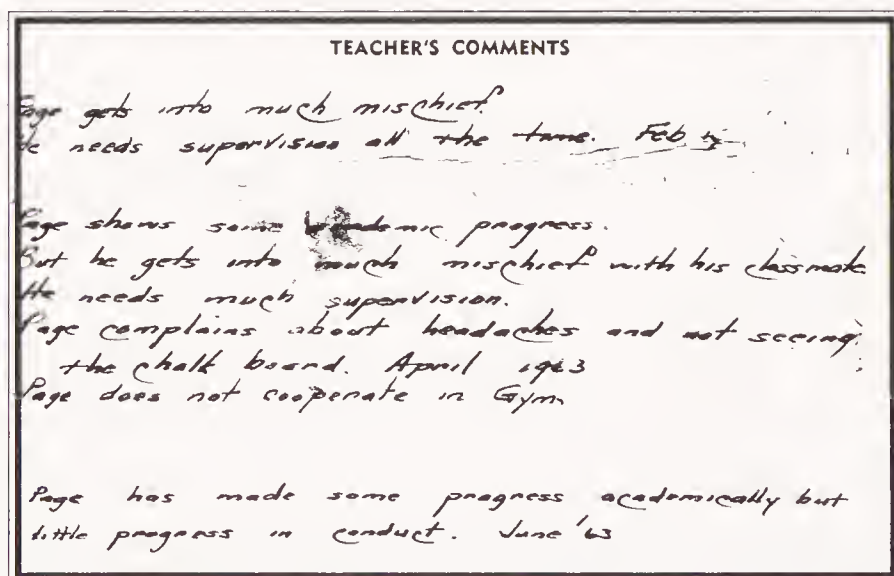 TEACHER'S COMMENTS
Page gets into much mischief.
He needs supervision all the time. Feb
Page shows some academic progress.
But he gets into much mischief with his classmate
He needs much supervision.
Page complains about headaches and not seeing
the chalk board. April 1963
Page does not cooperate in Gym.
Page has made some progress academically but
little progress in conduct. June '63